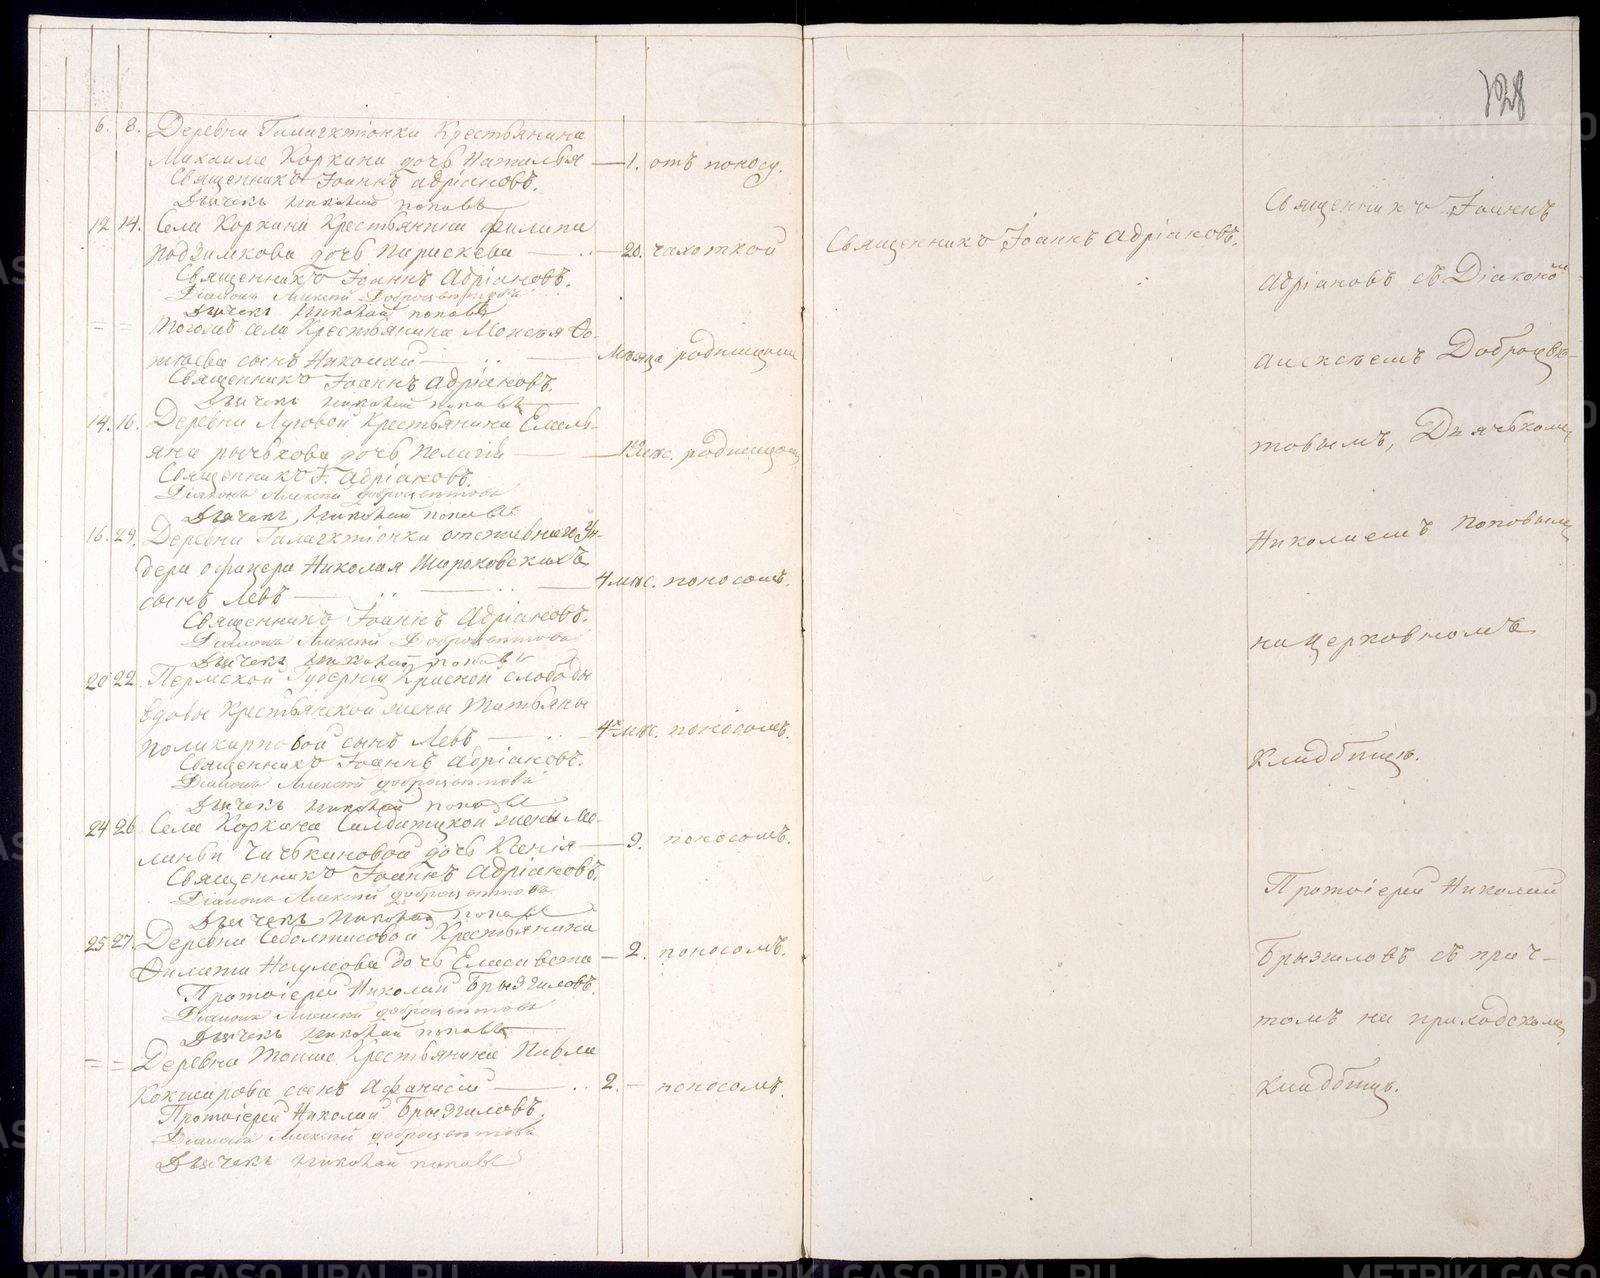 128
6. 8. Деревни Крестьянина
Михаила Коркина дочь Наталья — 1. отъ поносу.
Священникъ Іоаннъ Адріановъ.
Дьячекъ Николай Поповъ
12 14. Села Коркина Крестьянина Филипа
Подзимкова дочь Параскева — 20. чахоткой
Священникъ Іоаннъ Адріановъ.
Діаконъ Алексѣй Доброцвѣтовъ
Дьячекъ Николай Поповъ
= = Тогожъ села Крестьянина
сынъ Николай — родимцомъ
Священникъ Іоаннъ Адріановъ.
Дьячекъ Николай Поповъ
14. 16. Деревни Луговой Крестьянина Емель-
яна Рычкова дочь Пелагія — родимцомъ
Священникъ І. Адріановъ.
Діаконъ Алексѣй Доброцвѣтовъ
Дьячекъ Николай Поповъ
16. 29. Деревни отставнаго Ун-
дера офицера Николая Широковскихъ
сынъ Левъ — 4 мѣс. поносомъ.
Священникъ Іоаннъ Адріановъ.
Діаконъ Алексѣй Доброцвѣтовъ
Дьячекъ Николай Поповъ
20 22. Пермской Губерніи Красной слободы
вдовы Крестьянской жены Татьяны
Поликарповой сынъ Левъ — 4х мѣс. поносомъ.
Священникъ Іоаннъ Адріановъ.
Діаконъ Алексѣй Доброцвѣтовъ
Дьячекъ Николай Поповъ
24 26 Села Коркина Салдатской жены Ме-
ланьи Чичькановой дочь Ксенія — 9. поносомъ.
Священникъ Іоаннъ Адріановъ.
Діаконъ Алексѣй Доброцвѣтовъ
Дьячекъ Николай Поповъ
25 27. Деревни Крестьянина
Филата Наумова дочь Елисавета — 2. поносомъ.
Протоіерей Николай Брызгаловъ.
Діаконъ Алексѣй Доброцвѣтовъ
Дьячекъ Николай Поповъ
= = Деревни Крестьянина Павла
Кокшарова сынъ Афанасій — 2. — поносомъ.
Протоіерей Николай Брызгаловъ.
Діаконъ Алексѣй Доброцвѣтовъ
Дьячекъ Николай Поповъ
Священникъ Іоаннъ Адріановъ.
Священникъ Іоаннъ
Адріановъ съ Діакономъ
Алексѣемъ Доброцвѣ-
товымъ, Дьячькомъ
Николаемъ Поповымъ
на церковномъ
кладбищѣ.
Протоіерей Николай
Брызгаловъ съ прич-
томъ на приходскомъ
кладбищѣ.
METRIKI.GASO-URAL.RU